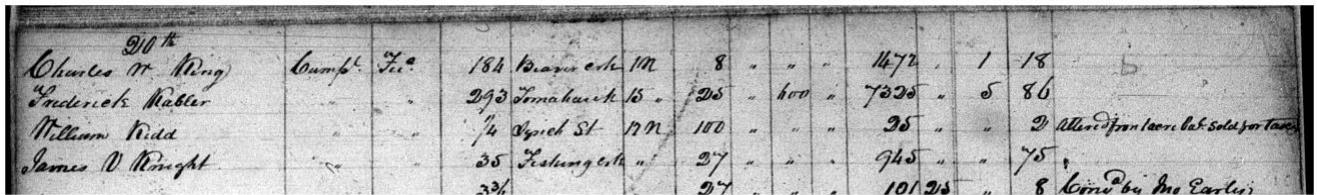 20th
Charles W King Campl. Fee. 184 Beaver crk 1 N 8 " " " 1472 . 1 18
Frederick Kabler " " 293 Tomahawk 15 " 25 " 600 " 7325 " 5 86
William Kidd " " 1/4 Lynch St 12 N 100 " " " 25 " " 2 Altered from 1 acre bal. sold for taxes
James V Knight " " 35 crk " 27 " " " 945 " " 75
3 3/4 27 101 25 " 8 Convd by Jno Early